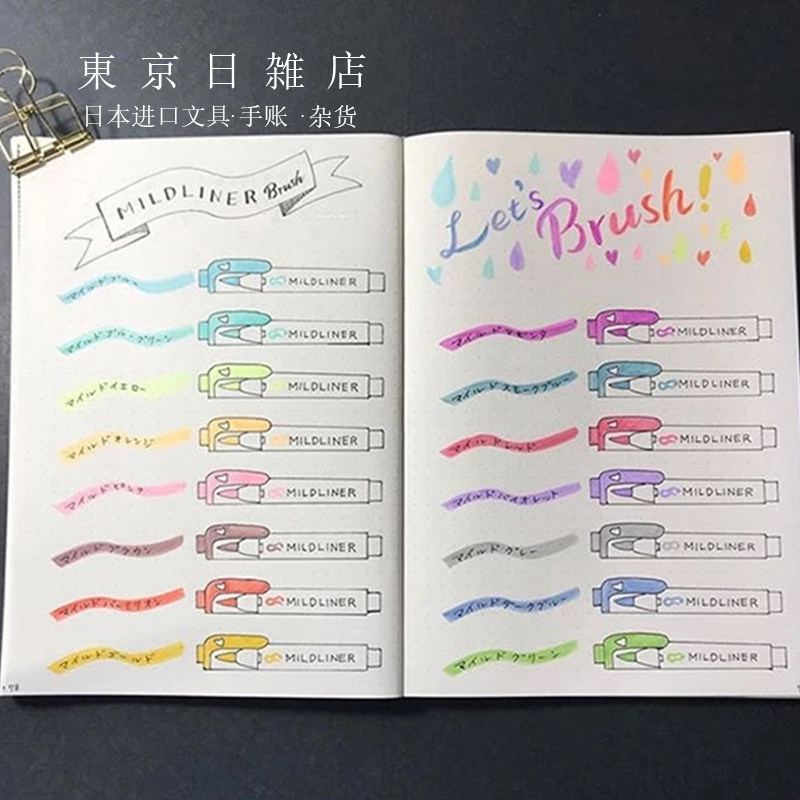 東京日雑店
日本进口文具·手账·杂货
MILDLINER Brush
マイルドブルー MILDLINER
マイルドブルーグリーン MILDLINER
マイルドイエロー MILDLINER
マイルドオレンジ MILDLINER
マイルドピンク MILDLINER
マイルドブラウン MILDLINER
マイルドバーミリオン MILDLINER
マイルドゴールド MILDLINER
Let's Brush!
マイルドマゼンタ MILDLINER
マイルドスモークブルー MILDLINER
マイルドレッド MILDLINER
マイルドバイオレット MILDLINER
マイルドグレー MILDLINER
マイルドダークブルー MILDLINER
マイルドグリーン MILDLINER